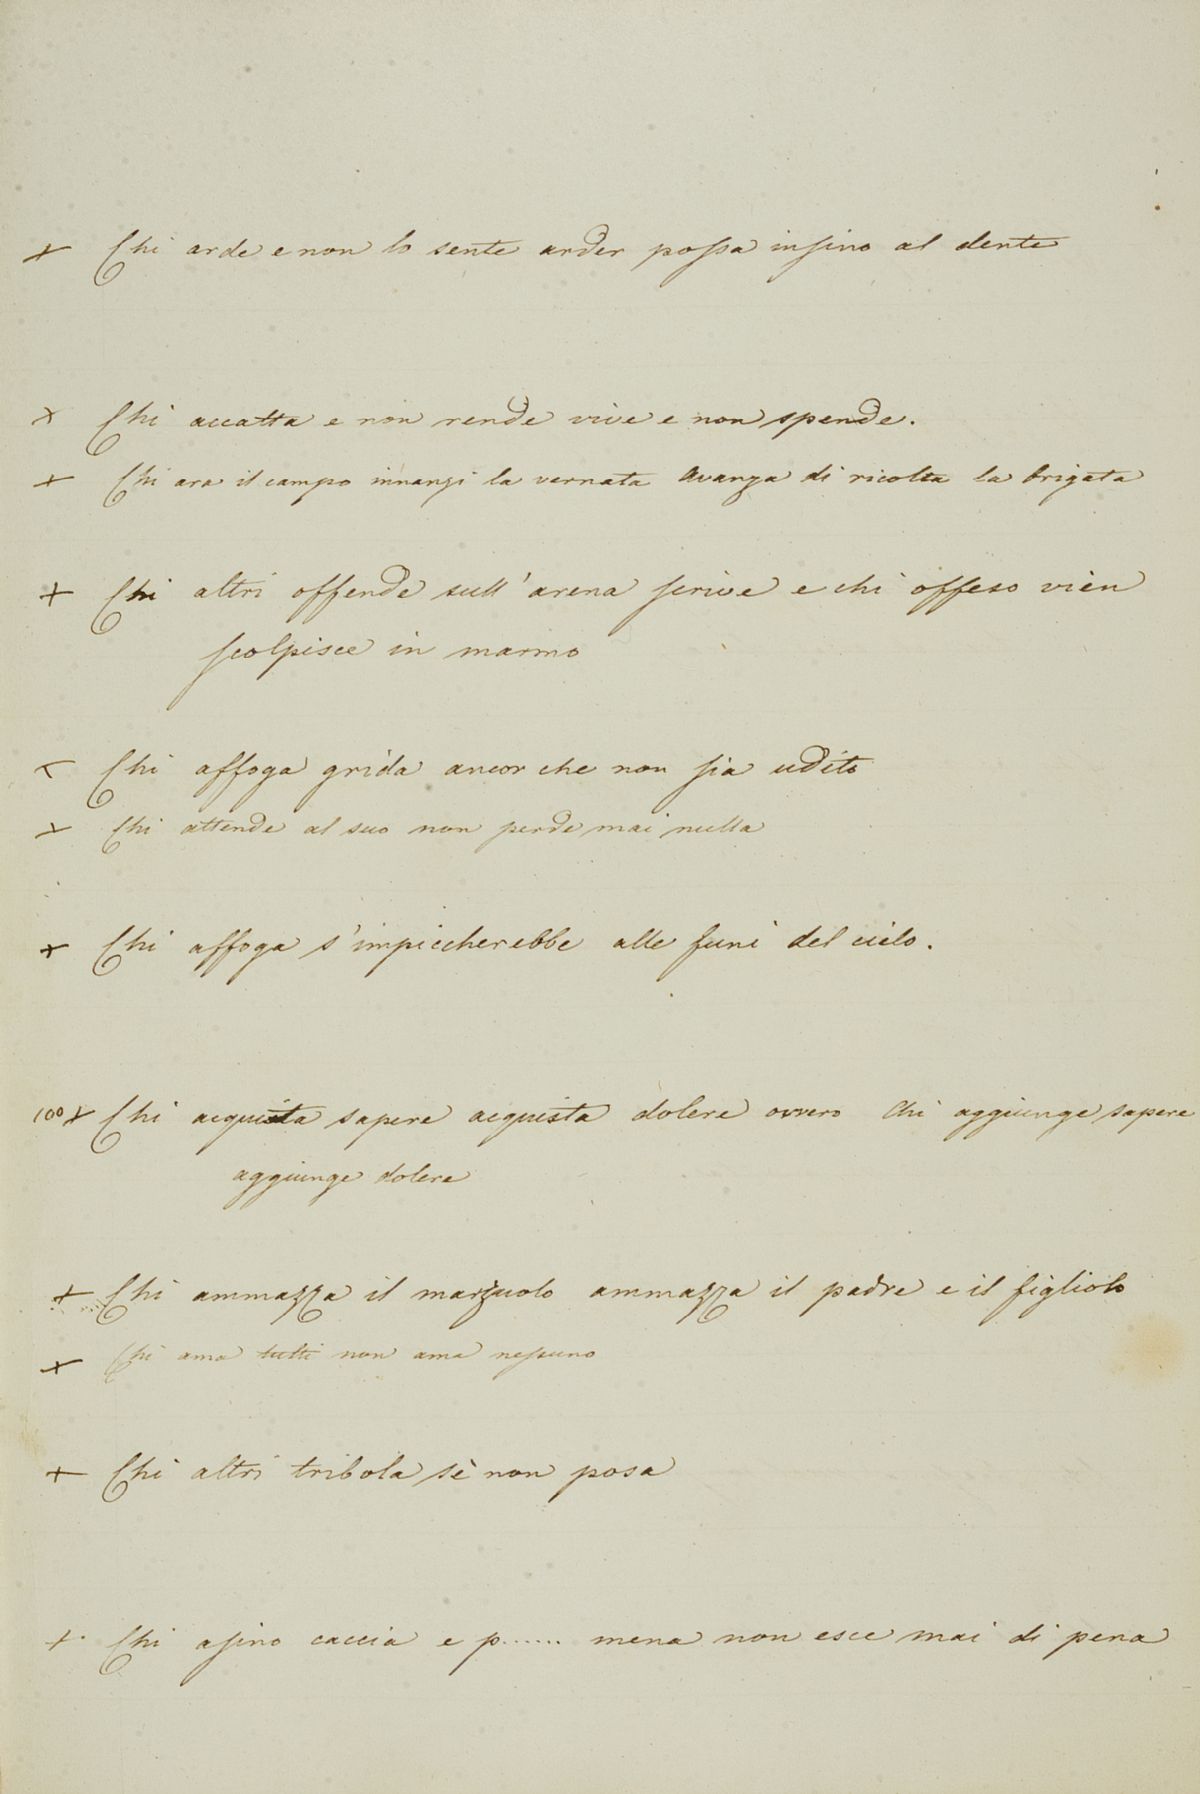 + Chi arde e non lo sente arder possa insino al dente
+ Chi accatta e non rende vive e non spende.
+ Chi ara il campo innanzi la vernata avanza di ricolta la brigata
+ Chi altri offende sull'arena scrive e chi offeso vien
scolpisce in marmo
+ Chi affoga grida ancor che non sia udito
+ Chi attende al suo non perde mai nulla
+ Chi affoga s'impiccherebbe alle funi del cielo.
100 + Chi acquista sapere acquista dolere ovvero Chi aggiunge sapere
aggiunge dolere
+ Chi ammazza il marzuolo ammazza il padre e il figliolo
+ Chi ama tutti non ama nessuno
+ Chi altri tribola sè non posa
+ Chi asino caccia e p...... mena non esce mai di pena